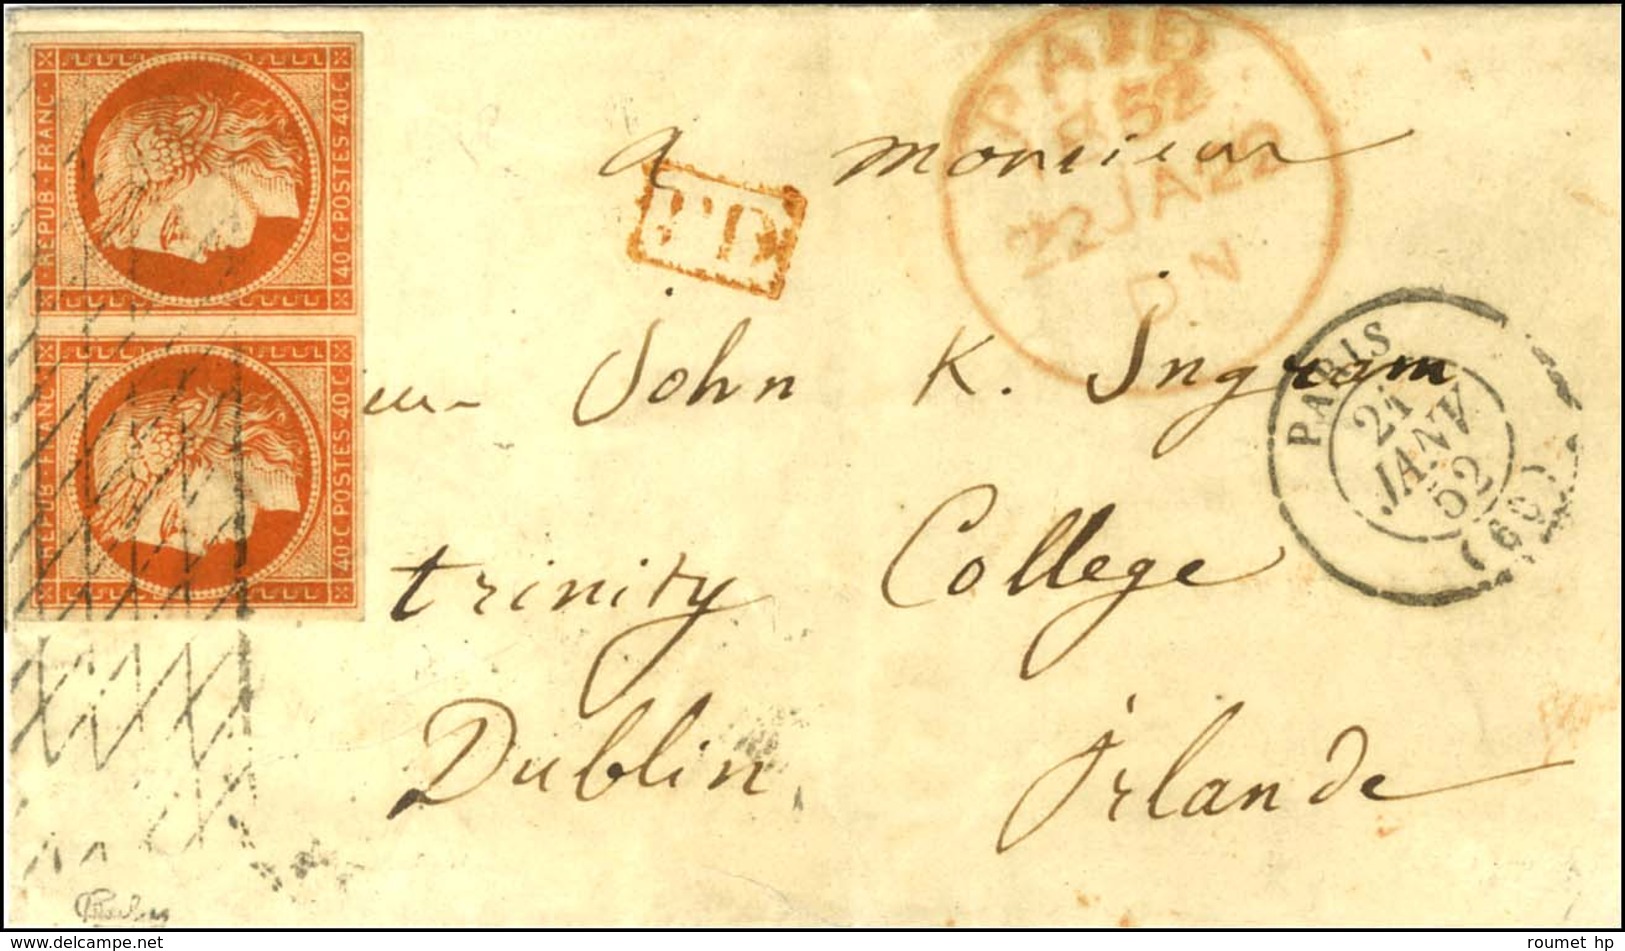 REPUB · FRANC ·
40 · C · POSTES · 40 · C
REPUB · FRANC ·
40 · C · POSTES · 40 · C
PD
PAID
52
22 JA 22
DN
PARIS
21
JANV
52
(60)
a monsieur
John K. Ingram
trinity College
Dublin, irlande
www.delcampe.net
roumet hp